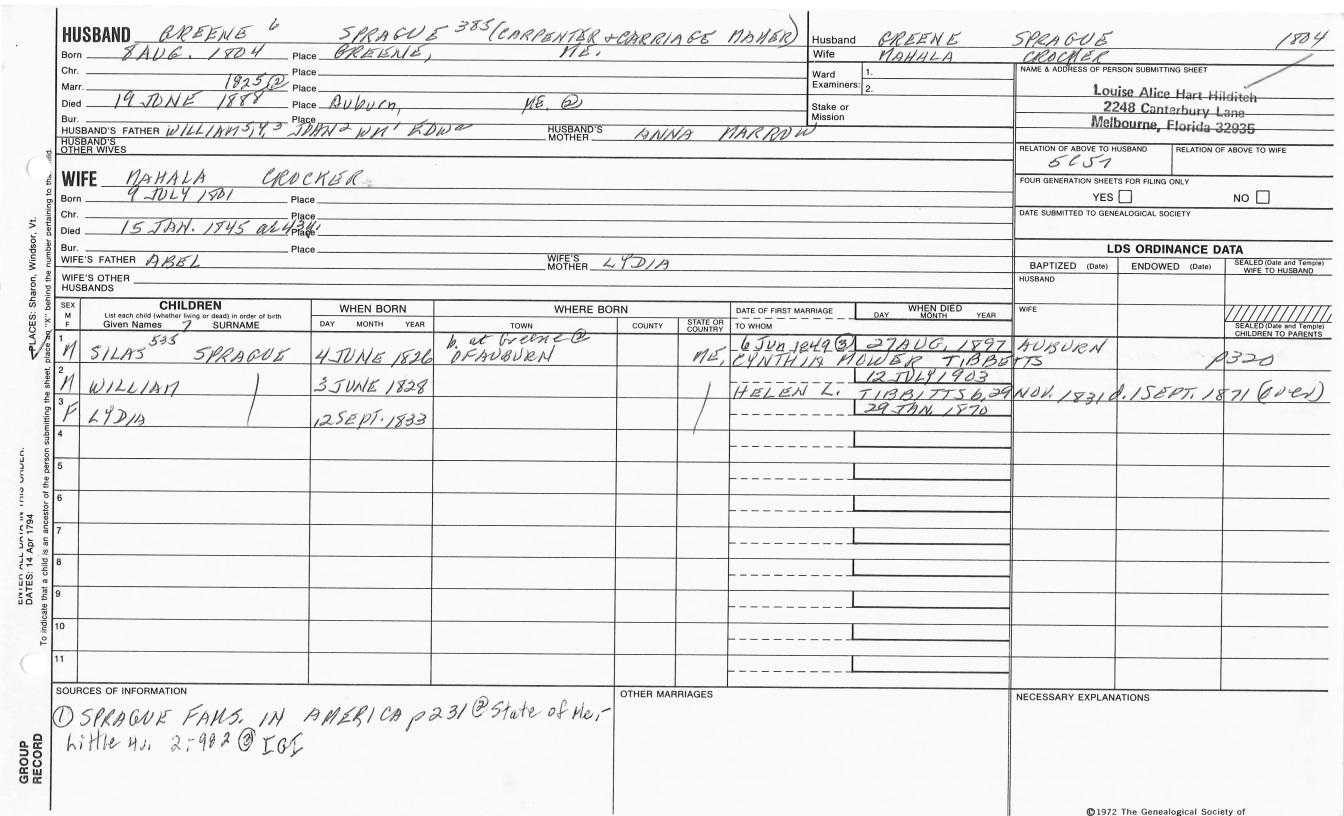 HUSBAND GREENE 6 SPRAGUE 385 (CARPENTER + CARRIAGE MAKER)
Born 8 AUG. 1804 Place GREENE, ME.
Chr. Place
Marr. 1825 ② Place
Died 19 JUNE 1888 Place Auburn, ME. ②
Bur. Place
HUSBAND'S FATHER WILLIAM 5, 4, 3 JOHN 2 WM 1 EDW HUSBAND'S MOTHER ANNA MARROW
HUSBAND'S OTHER WIVES
Husband GREENE SPRAGUE 1804
Wife MAHALA CROCKER
Ward Examiners: 1.
2.
Stake or Mission
NAME & ADDRESS OF PERSON SUBMITTING SHEET
Louise Alice Hart Hilditch
2248 Canterbury Lane
Melbourne, Florida 32935
RELATION OF ABOVE TO HUSBAND RELATION OF ABOVE TO WIFE
5C5r
FOUR GENERATION SHEETS FOR FILING ONLY
YES NO
DATE SUBMITTED TO GENEALOGICAL SOCIETY
WIFE MAHALA CROCKER
Born 9 JULY 1801 Place
Chr. Place
Died 15 JAN. 1845 ae 43 y. Place
Bur. Place
WIFE'S FATHER ABEL WIFE'S MOTHER LYDIA
WIFE'S OTHER HUSBANDS
LDS ORDINANCE DATA
BAPTIZED (Date) ENDOWED (Date) SEALED (Date and Temple) WIFE TO HUSBAND
HUSBAND
WIFE
SEALED (Date and Temple) CHILDREN TO PARENTS
SEX M F
CHILDREN
List each child (whether living or dead) in order of birth
Given Names 7 SURNAME
WHEN BORN
DAY MONTH YEAR
WHERE BORN
TOWN COUNTY STATE OR COUNTRY
DATE OF FIRST MARRIAGE
TO WHOM
WHEN DIED
DAY MONTH YEAR
1 M SILAS 535 SPRAGUE 4 JUNE 1826 b. at Greene ② OF AUBURN ME, 6 Jun 1849 ③ 27 AUG, 1897 AUBURN
CYNTHIA MOWER TIBBETTS p320
2 M WILLIAM 3 JUNE 1828 12 JULY 1903
HELEN L. TIBBITTS b. 29 NOV. 1831 d. 1 SEPT. 1871 (over)
3 F LYDIA 12 SEPT. 1833 29 JAN. 1870
4
5
6
7
8
9
10
11
SOURCES OF INFORMATION
① SPRAGUE FAMS. IN AMERICA p231 ② State of Me, -
Little 4v. 2:982 ③ IGI
OTHER MARRIAGES
NECESSARY EXPLANATIONS
©1972 The Genealogical Society of
GROUP RECORD
ENTER ALL DATA IN THIS ORDER:
DATES: 14 Apr 1794
PLACES: Sharon, Windsor, Vt.
To indicate that a child is an ancestor of the person submitting the sheet, place an "X" behind the number pertaining to the